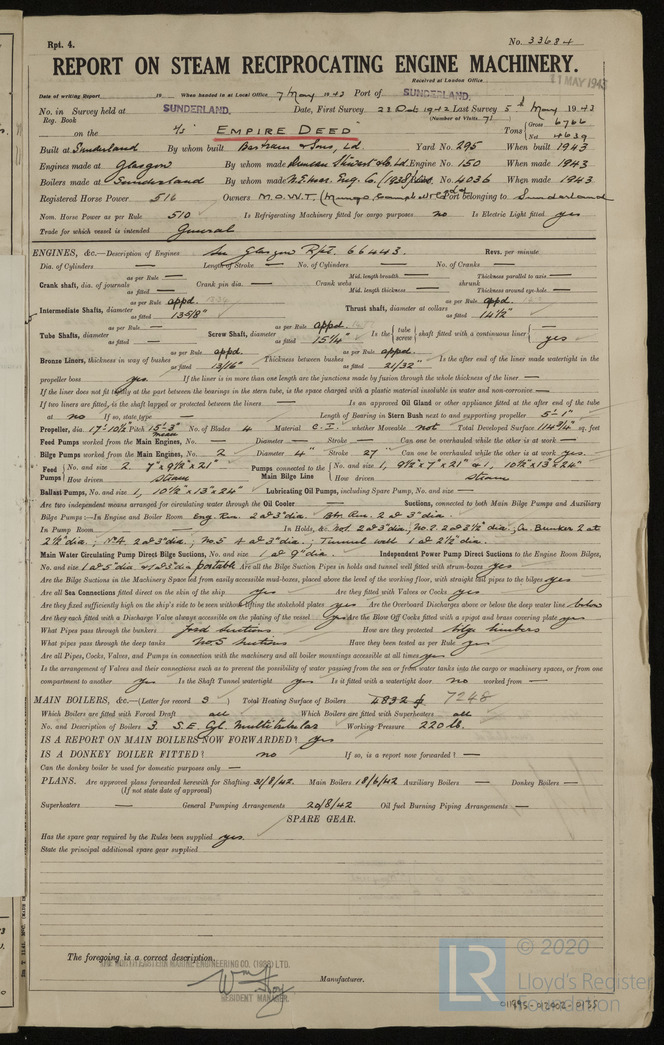 Rpt. 4.
No. 33684
REPORT ON STEAM RECIPROCATING ENGINE MACHINERY.
Received at London Office 11 MAY 1943
Date of writing Report 19 When handed in at Local Office 7 May 1943 Port of SUNDERLAND.
No. in Survey held at SUNDERLAND. Date, First Survey 22 Oct 1942 Last Survey 5th May 1943
Reg. Book (Number of Visits 71)
on the S/S EMPIRE DEED Tons Gross 6766 Net 4639
Built at Sunderland By whom built Bartram & Sons, Ld. Yard No. 295 When built 1943
Engines made at Glasgow By whom made Duncan Stewart & Co Ld. Engine No. 150 When made 1943
Boilers made at Sunderland By whom made N.E. Mar. Eng. Co. (1938) Boiler No. 4036 When made 1943
Registered Horse Power 516 Owners M.O.W.T. (Mungo Campbell Port belonging to Sunderland
Nom. Horse Power as per Rule 510 Is Refrigerating Machinery fitted for cargo purposes no Is Electric Light fitted yes
Trade for which vessel is intended General
ENGINES, &c.—Description of Engines See Glasgow Rpt. 66443. Revs. per minute
Dia. of Cylinders — Length of Stroke — No. of Cylinders — No. of Cranks —
Crank shaft, dia. of journals as per Rule — as fitted — Crank pin dia. — Crank webs Mid. length breadth — Mid. length thickness — shrunk Thickness parallel to axis — Thickness around eye-hole —
Intermediate Shafts, diameter as per Rule appd. as fitted 13 5/8" Thrust shaft, diameter at collars as per Rule appd. as fitted 14 1/2"
Tube Shafts, diameter as per Rule — as fitted — Screw Shaft, diameter as per Rule appd. as fitted 15 1/4" Is the tube screw shaft fitted with a continuous liner — yes
Bronze Liners, thickness in way of bushes as per Rule appd. as fitted 13/16" Thickness between bushes as per Rule appd. as fitted 21/32" Is the after end of the liner made watertight in the
propeller boss yes. If the liner is in more than one length are the junctions made by fusion through the whole thickness of the liner —
If the liner does not fit tightly at the part between the bearings in the stern tube, is the space charged with a plastic material insoluble in water and non-corrosive —
If two liners are fitted, is the shaft lapped or protected between the liners — Is an approved Oil Gland or other appliance fitted at the after end of the tube
at no If so, state type — Length of Bearing in Stern Bush next to and supporting propeller 5'-1"
Propeller, dia. 17'-10 1/2" Pitch 15'-3" mean No. of Blades 4 Material C.I. whether Moveable not Total Developed Surface 114 sq. feet
Feed Pumps worked from the Main Engines, No. — Diameter — Stroke — Can one be overhauled while the other is at work —
Bilge Pumps worked from the Main Engines, No. 2 Diameter 4" Stroke 27" Can one be overhauled while the other is at work yes.
Feed Pumps No. and size 2. 7" x 9 1/2" x 21" How driven steam Pumps connected to the Main Bilge Line No. and size 1, 9 1/2" x 7" x 21" & 1, 10 1/2" x 13" x 24" How driven steam
Ballast Pumps, No. and size 1, 10 1/2" x 13" x 24" Lubricating Oil Pumps, including Spare Pump, No. and size —
Are two independent means arranged for circulating water through the Oil Cooler — Suctions, connected to both Main Bilge Pumps and Auxiliary
Bilge Pumps:—In Engine and Boiler Room Eng. Rm. 2 @ 3" dia. Blr. Rm. 2 @ 3" dia.
In Pump Room — In Holds, &c. No1. 2 @ 3" dia; No.2. 2 @ 3 1/2" dia; Cr. Bunker 2 at
2 1/2" dia; No4. 2 @ 3" dia; No.5 4 @ 3" dia; Tunnel well 1 @ 2 1/2" dia.
Main Water Circulating Pump Direct Bilge Suctions, No. and size 1 @ 9" dia. Independent Power Pump Direct Suctions to the Engine Room Bilges,
No. and size 1 @ 5" dia portable Are all the Bilge Suction Pipes in holds and tunnel well fitted with strum-boxes yes
Are the Bilge Suctions in the Machinery Space led from easily accessible mud-boxes, placed above the level of the working floor, with straight tail pipes to the bilges yes
Are all Sea Connections fitted direct on the skin of the ship yes Are they fitted with Valves or Cocks yes
Are they fixed sufficiently high on the ship's side to be seen without lifting the stokehold plates yes Are the Overboard Discharges above or below the deep water line below
Are they each fitted with a Discharge Valve always accessible on the plating of the vessel yes Are the Blow Off Cocks fitted with a spigot and brass covering plate yes
What Pipes pass through the bunkers How are they protected
What pipes pass through the deep tanks No.5 suctions Have they been tested as per Rule yes
Are all Pipes, Cocks, Valves, and Pumps in connection with the machinery and all boiler mountings accessible at all times yes
Is the arrangement of Valves and their connections such as to prevent the possibility of water passing from the sea or from water tanks into the cargo or machinery spaces, or from one
compartment to another yes Is the Shaft Tunnel watertight yes Is it fitted with a watertight door no worked from —
MAIN BOILERS, &c.—(Letter for record S) Total Heating Surface of Boilers 4832 7248
Which Boilers are fitted with Forced Draft all Which Boilers are fitted with Superheaters all
No. and Description of Boilers 3. S.E. Cyl. Multitubular Working Pressure 220 lb.
IS A REPORT ON MAIN BOILERS NOW FORWARDED? yes
IS A DONKEY BOILER FITTED? no If so, is a report now forwarded? —
Can the donkey boiler be used for domestic purposes only —
PLANS. Are approved plans forwarded herewith for Shafting 31/8/42 Main Boilers 18/6/42 Auxiliary Boilers — Donkey Boilers —
(If not state date of approval)
Superheaters — General Pumping Arrangements 20/8/42 Oil fuel Burning Piping Arrangements —
SPARE GEAR.
Has the spare gear required by the Rules been supplied yes.
State the principal additional spare gear supplied
The foregoing is a correct description,
NORTH EASTERN MARINE ENGINEERING CO. (1938) LTD.
RESIDENT MANAGER. Manufacturer.
LR © 2020
Lloyd's Register
Foundation